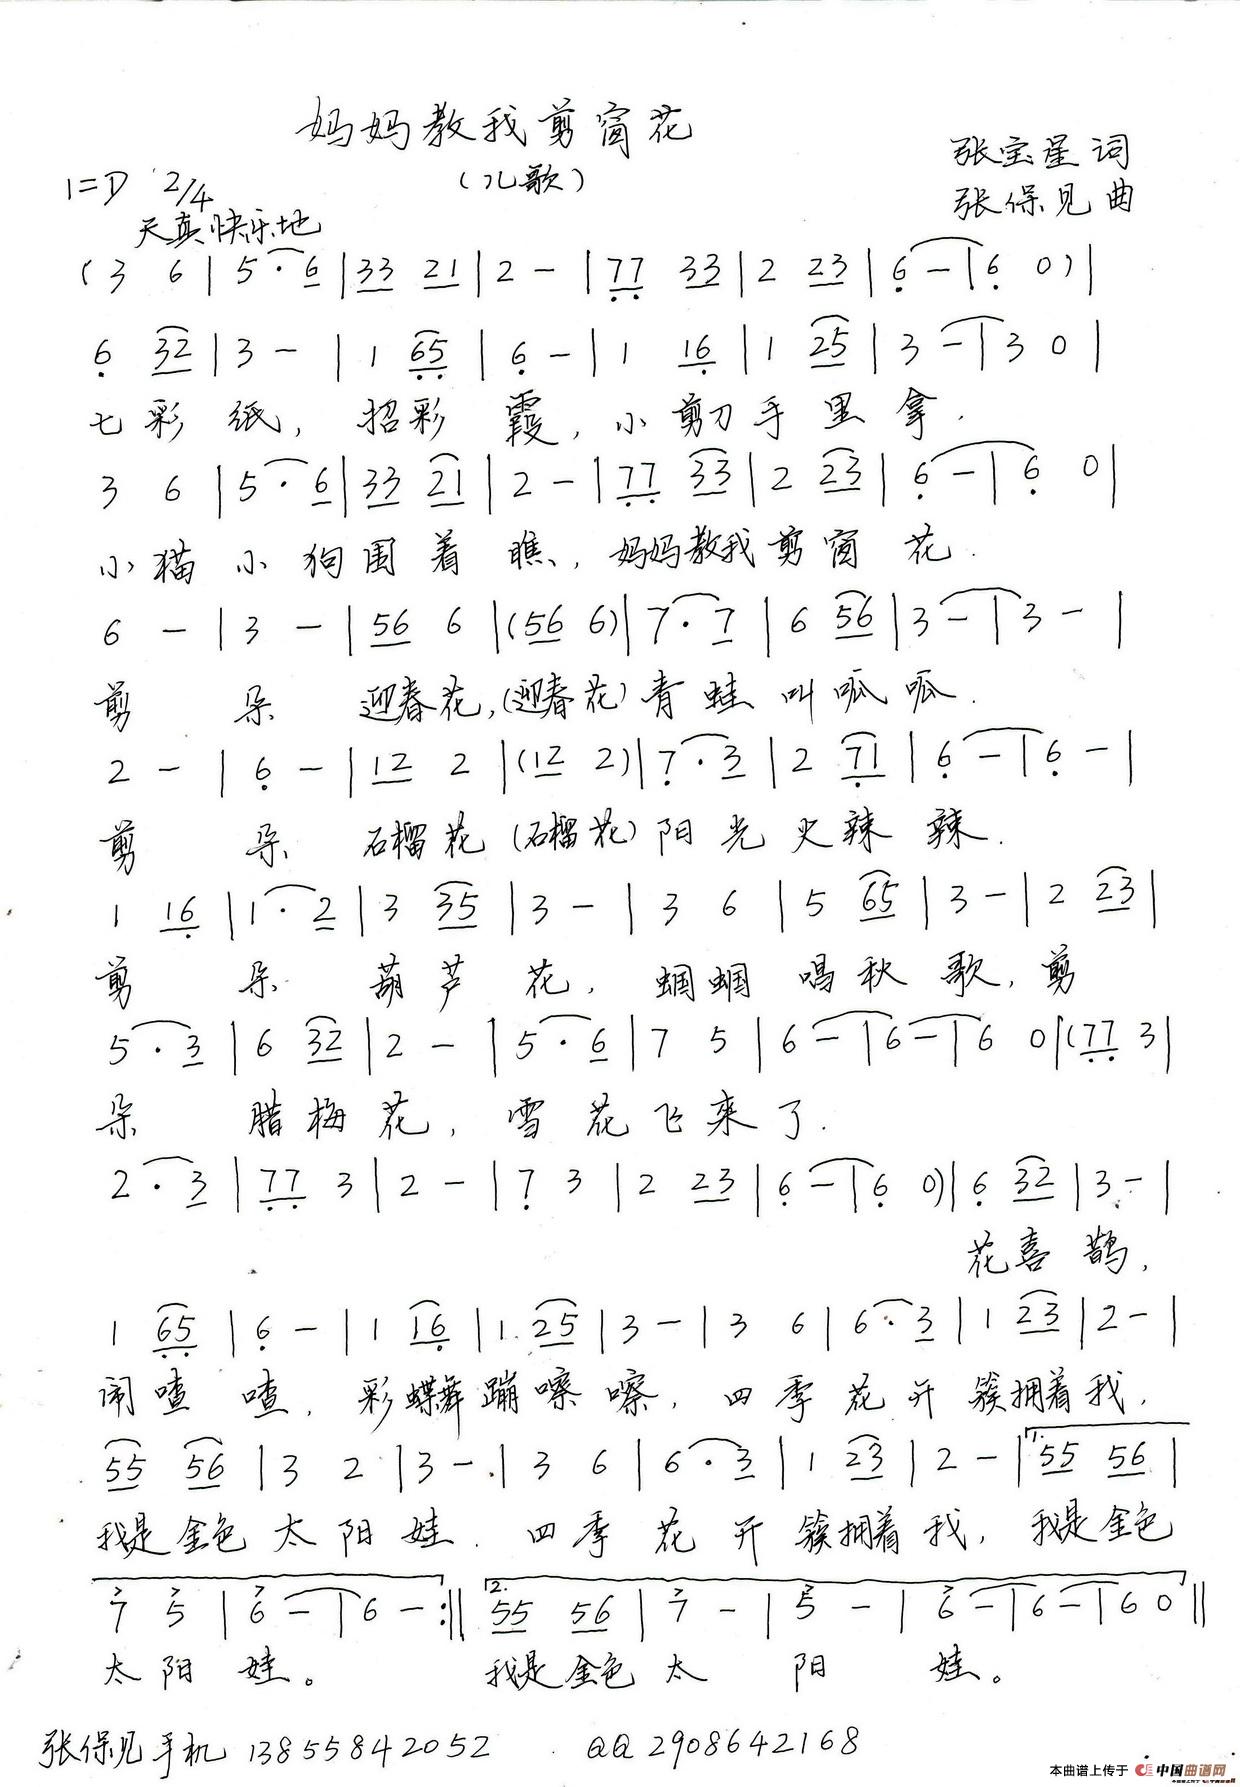 妈妈教我剪窗花
(儿歌)
张宝星词
张保见曲
1=D 2/4
天真快乐地
(3 6 | 5 · 6 | 33 21 | 2 - | 77 33 | 2 23 | 6 - | 6 0) |
6 32 | 3 - | 1 65 | 6 - | 1 16 | 1 25 | 3 - | 3 0 |
七彩纸,招彩霞,小剪刀手里拿.
3 6 | 5 · 6 | 33 21 | 2 - | 77 33 | 2 23 | 6 - | 6 0 |
小猫小狗围着瞧,妈妈教我剪窗花.
6 - | 3 - | 56 6 | (56 6) | 7 · 7 | 6 56 | 3 - | 3 - |
剪朵迎春花,(迎春花)青蛙叫呱呱.
2 - | 6 - | 12 2 | (12 2) | 7 · 3 | 2 71 | 6 - | 6 - |
剪朵石榴花(石榴花)阳光火辣辣.
1 16 | 1 · 2 | 3 35 | 3 - | 3 6 | 5 65 | 3 - | 2 23 |
剪朵葫芦花,蝈蝈唱秋歌,剪
5 · 3 | 6 32 | 2 - | 5 · 6 | 7 5 | 6 - | 6 - | 6 0 | (77 3 |
朵腊梅花,雪花飞来了.
2 · 3 | 77 3 | 2 - | 7 3 | 2 23 | 6 - | 6 0) | 6 32 | 3 - |
花喜鹊,
1 65 | 6 - | 1 16 | 1 25 | 3 - | 3 6 | 6 · 3 | 1 23 | 2 - |
闹喳喳,彩蝶舞蹦嚓嚓,四季花开簇拥着我,
55 56 | 3 2 | 3 - | 3 6 | 6 · 3 | 1 23 | 2 - | 1. 55 56 |
我是金色太阳娃.四季花开簇拥着我,我是金色
7 5 | 6 - | 6 - :|| 2. 55 56 | 7 - | 5 - | 6 - | 6 - | 6 0 ||
太阳娃。我是金色太阳娃。
张保见手机 13855842052 QQ 2908642168
本曲谱上传于 中国曲谱网